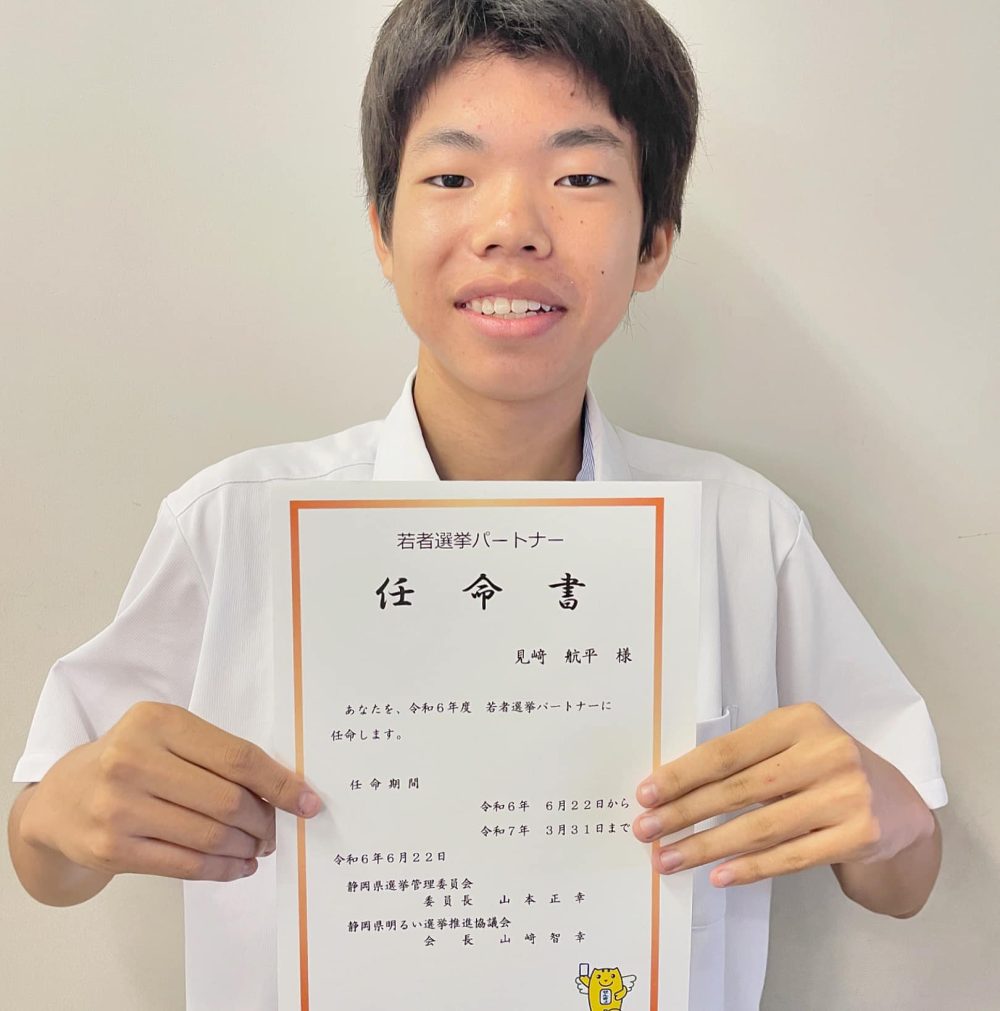 若者選挙パートナー
任 命 書
見﨑 航平 様
あなたを、令和6年度 若者選挙パートナーに
任命します。
任 命 期 間
令和6年 6月22日から
令和7年 3月31日まで
令和6年6月22日
静岡県選挙管理委員会
委 員 長 山 本 正 幸
静岡県明るい選挙推進協議会
会 長 山 﨑 智 幸